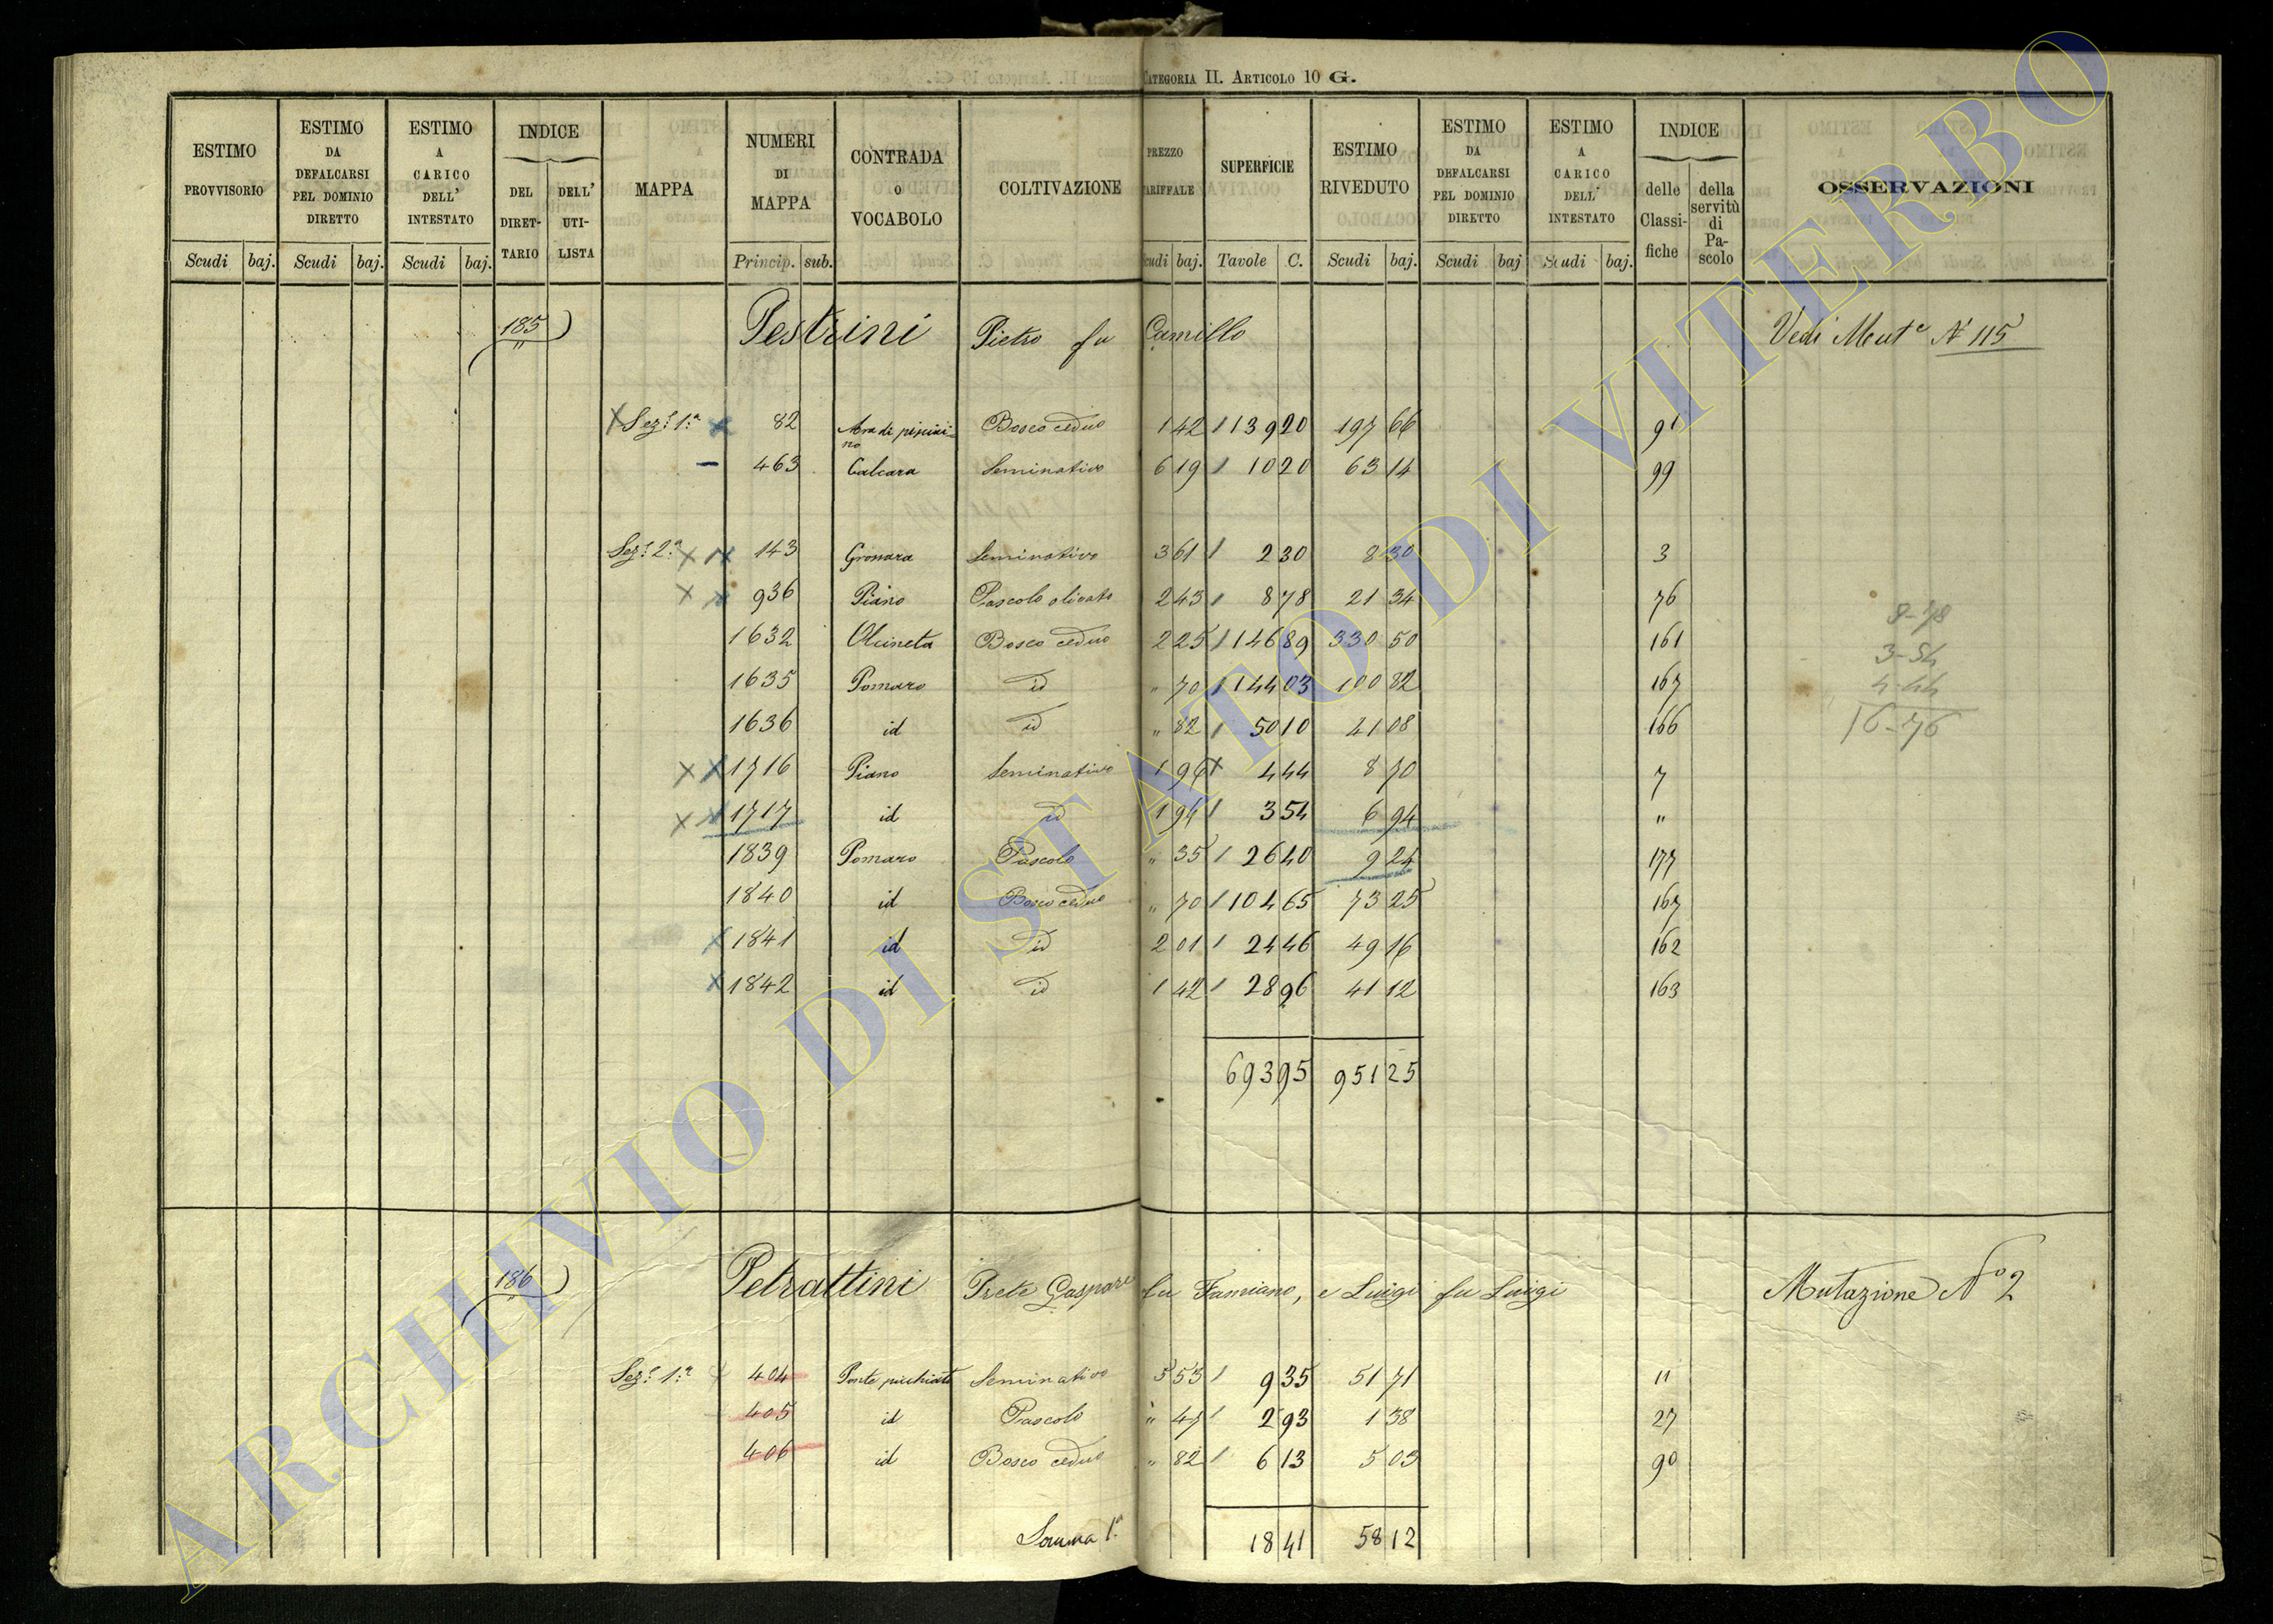 CATEGORIA II. ARTICOLO 10 G.
ESTIMO PROVVISORIO | ESTIMO DA DEFALCARSI PEL DOMINIO DIRETTO | ESTIMO A CARICO DELL' INTESTATO | INDICE | MAPPA | NUMERI DI MAPPA | CONTRADA O VOCABOLO | COLTIVAZIONE | PREZZO TARIFFALE | SUPERFICIE | ESTIMO RIVEDUTO | ESTIMO DA DEFALCARSI PEL DOMINIO DIRETTO | ESTIMO A CARICO DELL' INTESTATO | INDICE | OSSERVAZIONI
DEL DIRETTARIO | DELL' UTILISTA | delle Classifiche | della servitù di Pascolo
Scudi baj. Scudi baj. Scudi baj. Princip. sub. Scudi baj. Tavole C. Scudi baj. Scudi baj Scudi baj.
185 Pestrini Pietro fu Camillo Vedi Mut.e N° 115
Sez.e 1.a 82 Ara di piscini-no Bosco ceduo 1 42 139 20 197 66 91
463 Calcara Seminativo 6 19 10 20 63 14 99
Sez.e 2.a 143 Gronara Seminativo 3 61 2 30 8 30 3
936 Piano Pascolo olivato 2 43 8 78 21 34 76
1632 Olcineta Bosco ceduo 2 25 146 89 330 50 161
1635 Pomaro id " 70 144 03 100 82 167
1636 id id " 82 50 10 41 08 166
1716 Piano Seminativo 1 96 4 44 8 70 7
1717 id id 1 94 3 54 6 94 "
1839 Pomaro Pascolo " 35 26 40 9 24 177
1840 id Bosco ceduo " 70 104 65 73 25 167
1841 id id 2 01 24 46 49 16 162
1842 id id 1 42 28 96 41 12 163
693 95 951 25
8-78
3-54
4-44
16-76
186 Petrattini Prete Gaspare fu Famiano, e Luigi fu Luigi Mutazione N° 2
Sez.e 1.a 404 Ponte picchiato Seminativo 5 53 9 35 51 71 11
405 id Pascolo " 47 2 93 1 38 27
406 id Bosco ceduo " 82 6 13 5 03 90
Somma 1.a 18 41 58 12
ARCHIVIO DI STATO DI VITERBO